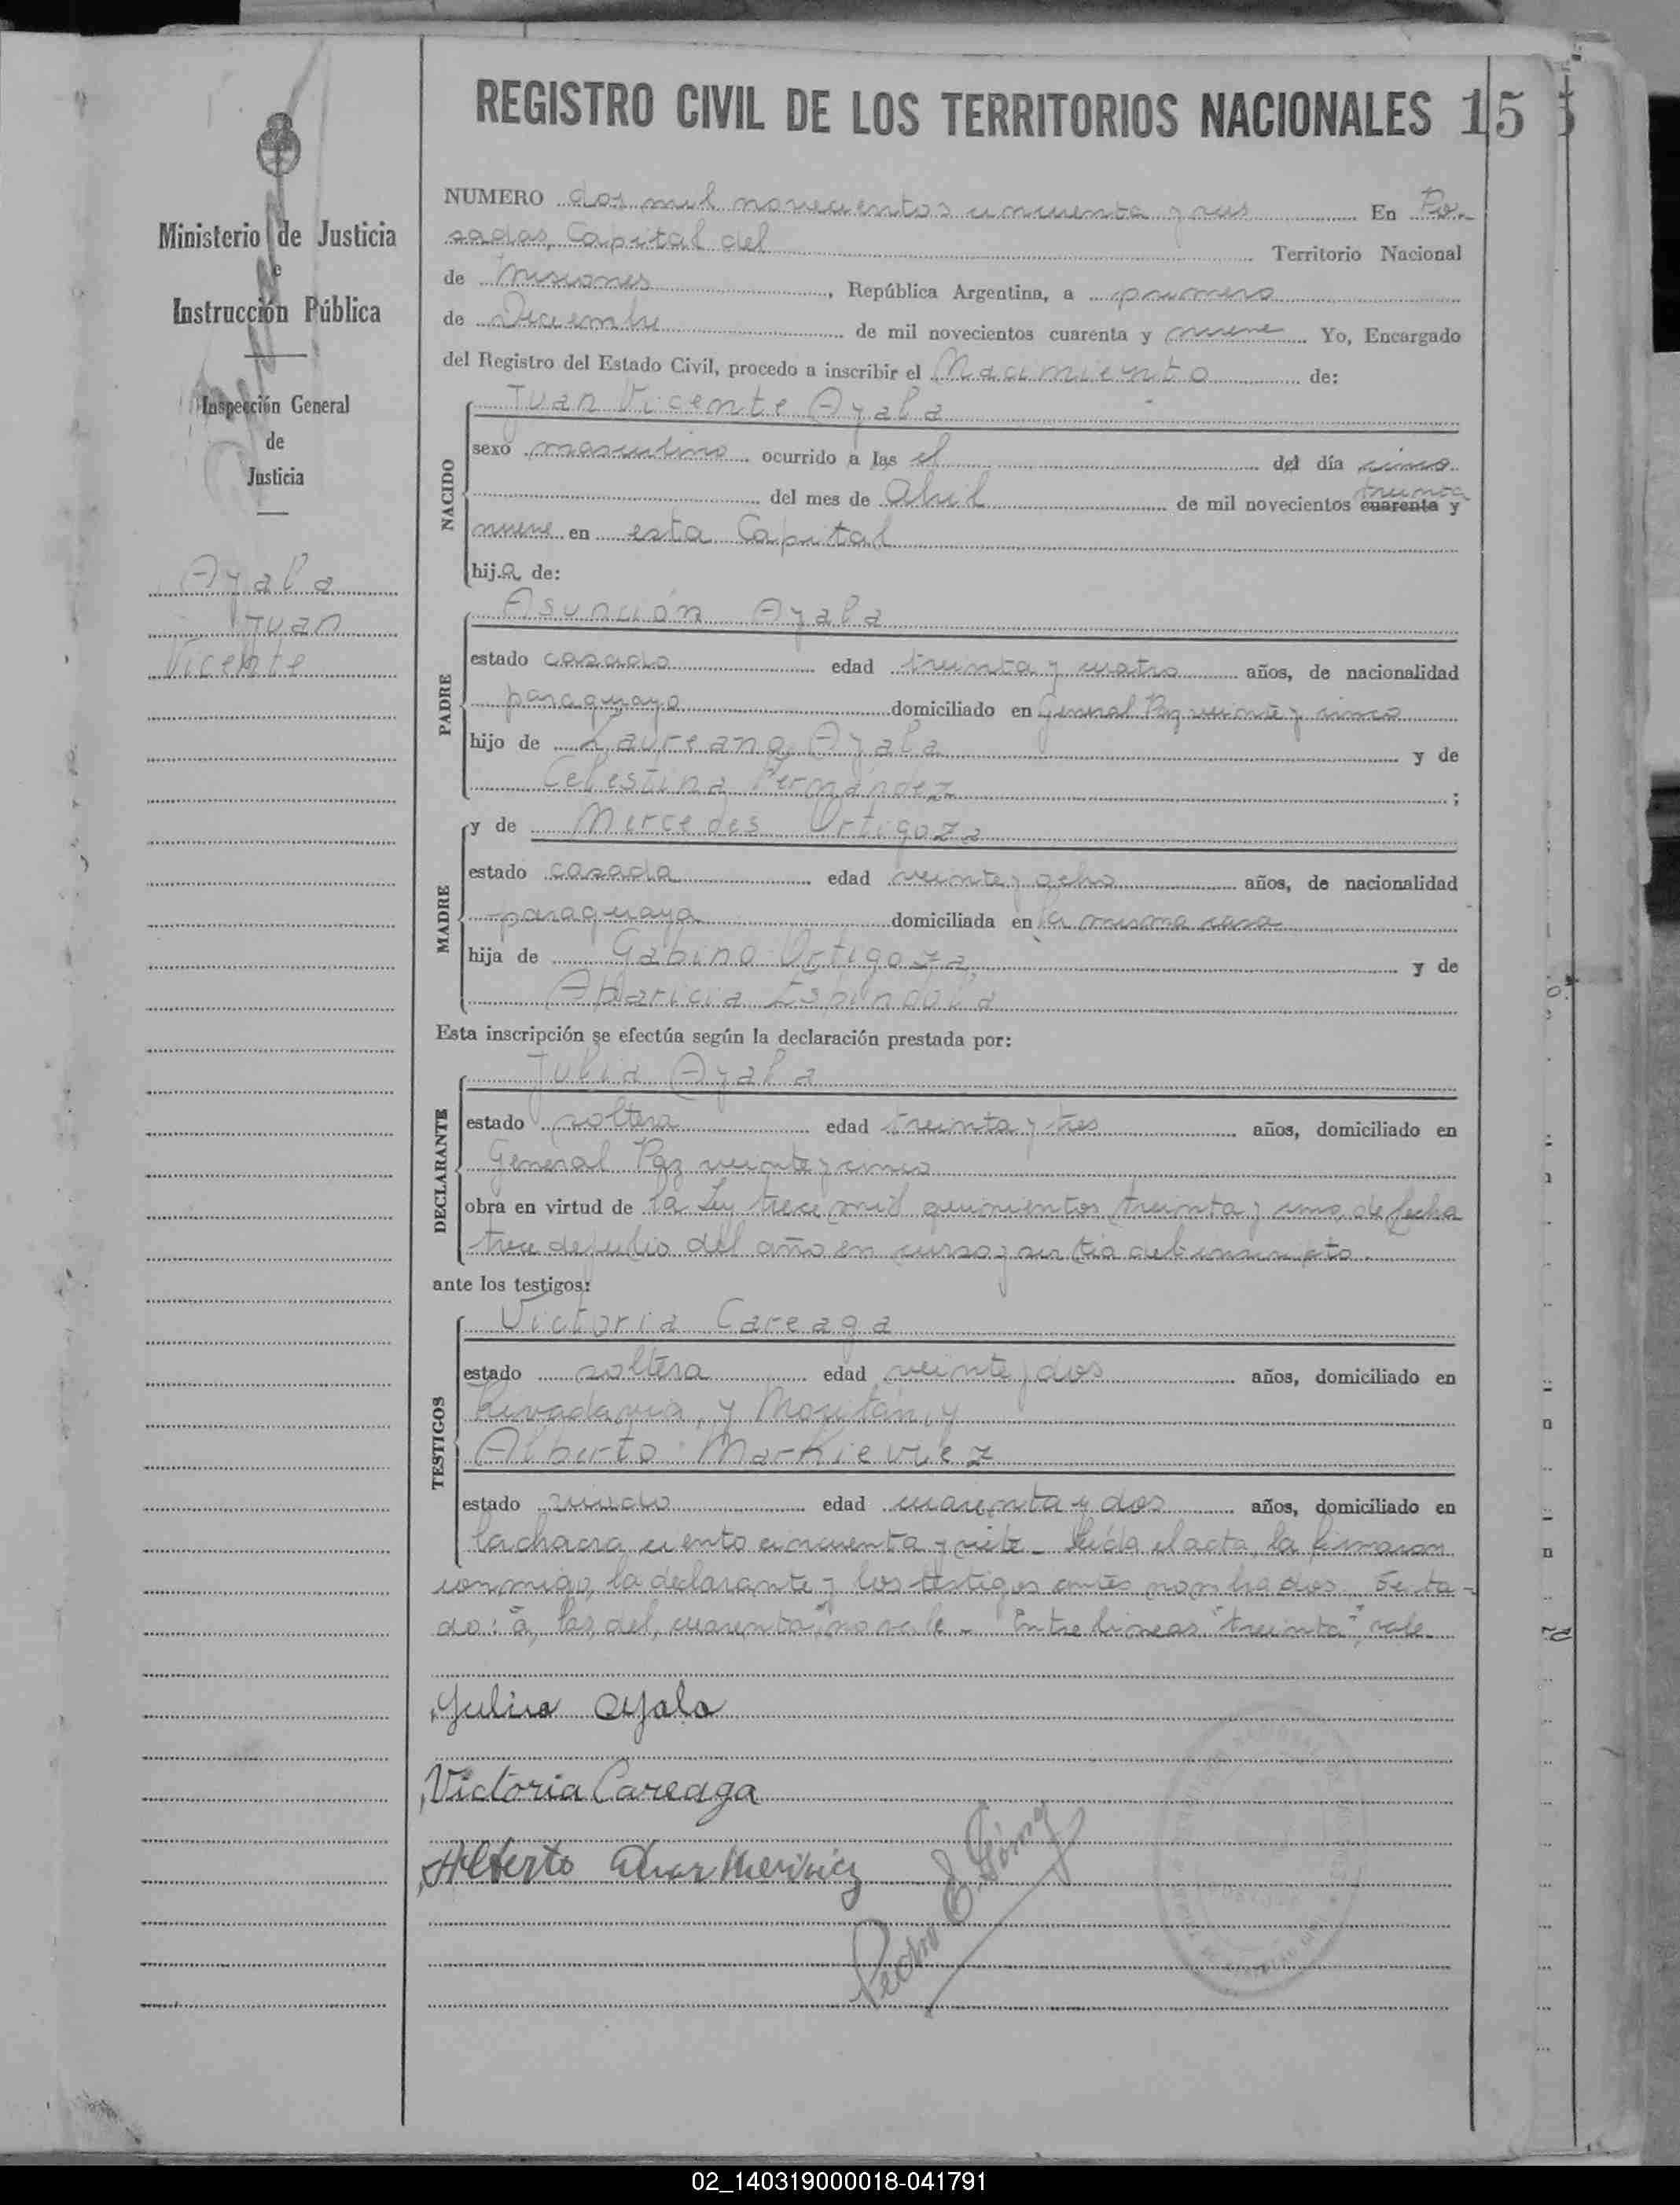 REGISTRO CIVIL DE LOS TERRITORIOS NACIONALES 15
Ministerio de Justicia
e
Instrucción Pública
Inspección General
de
Justicia
Ayala
Juan
Vicente
NUMERO dos mil novecientos cincuenta y seis En Po-
sadas, Capital del Territorio Nacional
de Misiones, República Argentina, a primero
de Diciembre de mil novecientos cuarenta y nueve Yo, Encargado
del Registro del Estado Civil, procedo a inscribir el Nacimiento de:
NACIDO
Juan Vicente Ayala
sexo masculino ocurrido a las el del día cinco
treinta
del mes de Abril de mil novecientos cuarenta y
nueve en esta Capital
hijo de:
PADRE
Asunción Ayala
estado casado edad treinta y cuatro años, de nacionalidad
paraguayo domiciliado en General Paz veinte y cinco
hijo de Laureano Ayala y de
Celestina Fernández ;
MADRE
y de Mercedes Ortigoza
estado casada edad veinte y ocho años, de nacionalidad
paraguaya domiciliada en la misma casa
hija de Gabino Ortigoza y de
Aparicia Espindola
Esta inscripción se efectúa según la declaración prestada por:
DECLARANTE
Julia Ayala
estado soltera edad treinta y tres años, domiciliado en
General Paz veinte y cinco
obra en virtud de la Ley trece mil quinientos treinta y uno, de fecha
trece de julio del año en curso y ser tia del inscripto.
ante los testigos:
TESTIGOS
Victoria Careaga
estado soltera edad veinte y dos años, domiciliado en
Rivadavia y Moritán, y
Alberto Markievicz
estado viudo edad cuarenta y dos años, domiciliado en
la chacra ciento cincuenta y siete. Leída el acta, la firmaron
conmigo, la declarante y los testigos antes nombrados. Testa-
do: "a, las, del, cuarenta", no vale. Entre líneas "treinta", vale.
Julia Ayala
Victoria Careaga
Alberto Markievicz
Pedro E. Gómez
02_140319000018-041791